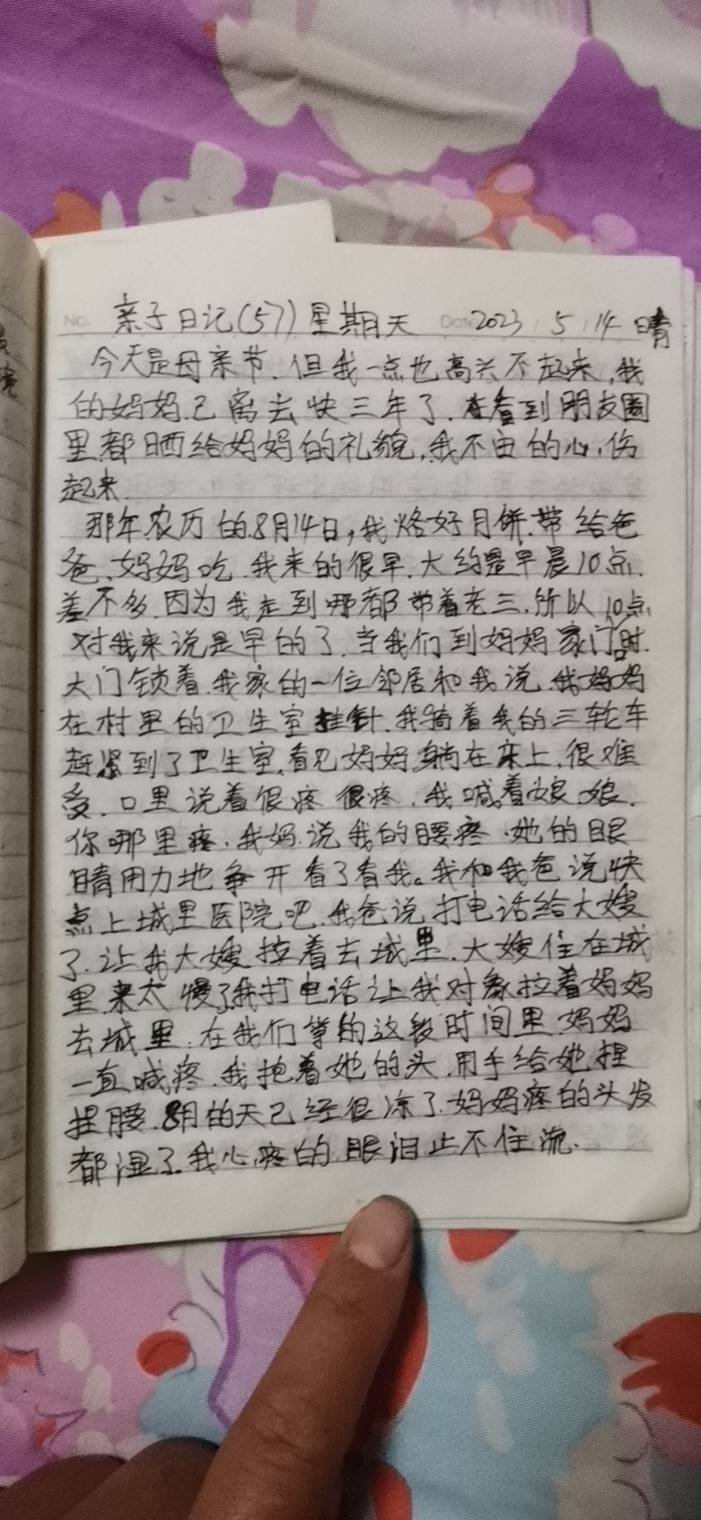 No. 亲子日记(57)星期天 Date 2023 5 14 晴
今天是母亲节.但我一点也高兴不起来,我
的妈妈已离去快三年了.在看到朋友圈
里都晒给妈妈的礼貌,我不由的心,伤
起来.
那年农历的.8月14日,我烙好月饼.带给爸
爸.妈妈吃.我来的很早.大约是早晨10点.
差不多.因为我走到哪都带着老三.所以10点
对我来说是早的了.当我们到妈妈家门时.
大门锁着.我家的一位邻居和我说.我妈妈
在村里的卫生室挂针.我骑着我的三轮车
赶紧到了卫生室.看见妈妈躺在床上.很难
受.口里说着很疼很疼.我喊着娘.娘.
你哪里疼.我妈说我的腰疼.她的眼
睛用力地争开看了看我。我和我爸说快
点上城里医院吧.我爸说打电话给大嫂
了.让我大嫂拉着去城里.大嫂住在城
里来太慢了我打电话让我对象拉着妈妈
去城里.在我们等的这段时间里妈妈
一直喊疼.我抱着她的头.用手给她捏
捏腰.8月的天已经很凉了.妈妈疼的头发
都湿了.我心疼的眼泪止不住流.